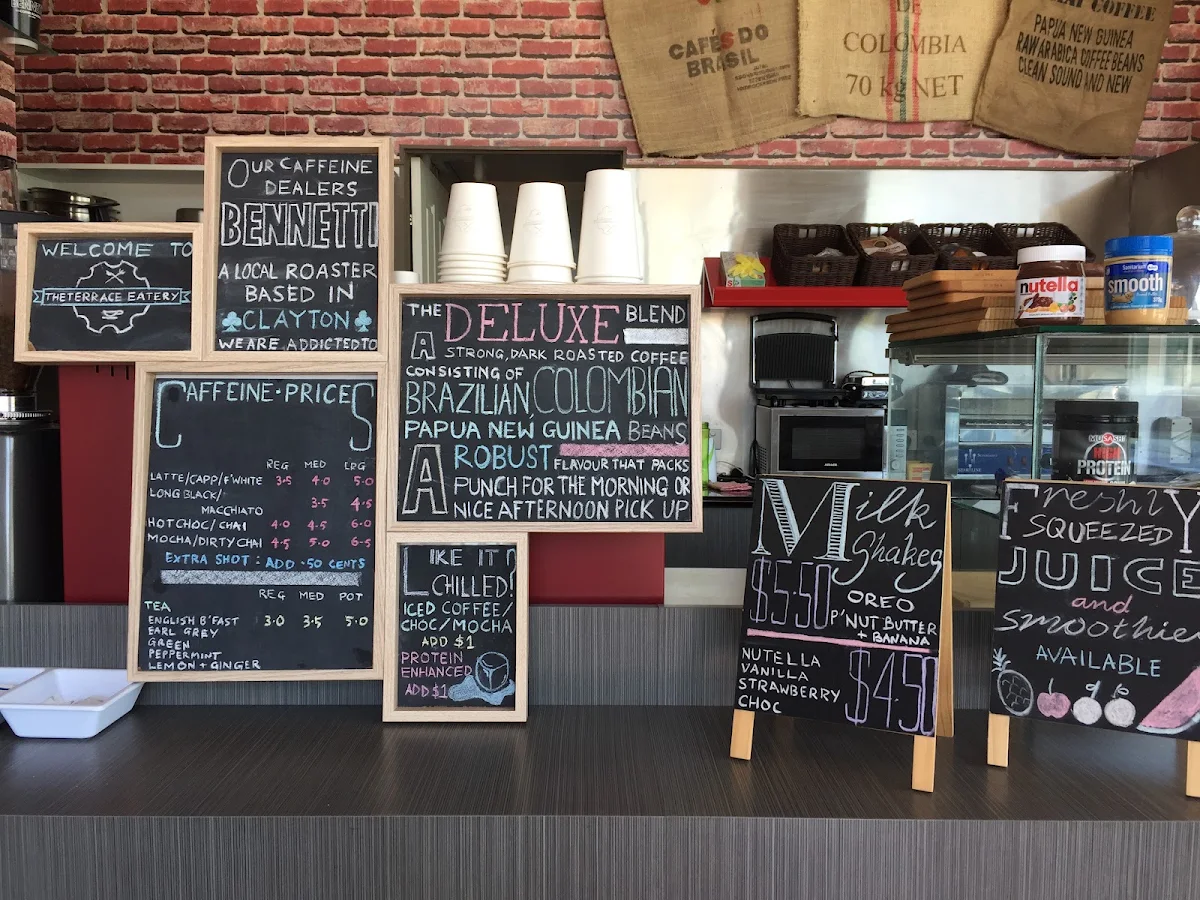 CAFÉS DO
BRASIL
DE
COLOMBIA
70 kg NET
COFFEE
PAPUA NEW GUINEA
RAW ARABICA COFFEE BEANS
CLEAN SOUND AND NEW
WELCOME TO
THE TERRACE EATERY
OUR CAFFEINE
DEALERS
BENNETTI
A LOCAL ROASTER
BASED IN
CLAYTON
WE ARE ADDICTED TO
CAFFEINE-PRICES
REG MED LRG
LATTE/CAPP/F'WHITE 3.5 4.0 5.0
LONG BLACK/
MACCHIATO 3.5 4.5
HOT CHOC/CHAI 4.0 4.5 6.0
MOCHA/DIRTY CHAI 4.5 5.0 6.5
EXTRA SHOT: ADD .50 CENTS
REG MED POT
TEA
ENGLISH B'FAST 3.0 3.5 5.0
EARL GREY
GREEN
PEPPERMINT
LEMON + GINGER
THE DELUXE BLEND
A STRONG, DARK ROASTED COFFEE
CONSISTING OF
BRAZILIAN, COLOMBIAN
PAPUA NEW GUINEA BEANS
A ROBUST FLAVOUR THAT PACKS
PUNCH FOR THE MORNING OR
NICE AFTERNOON PICK UP
LIKE IT
CHILLED?
ICED COFFEE/
CHOC/MOCHA
ADD $1
PROTEIN
ENHANCED
ADD $1
nutella
Sanitarium
smooth
MUSASHI
HIGH
PROTEIN
Milk
Shakes
$5.50
OREO
P'NUT BUTTER
+ BANANA
NUTELLA
VANILLA
STRAWBERRY
CHOC
$4.50
FreshlY
SQUEEZED
JUICE
and
smoothie
AVAILABLE